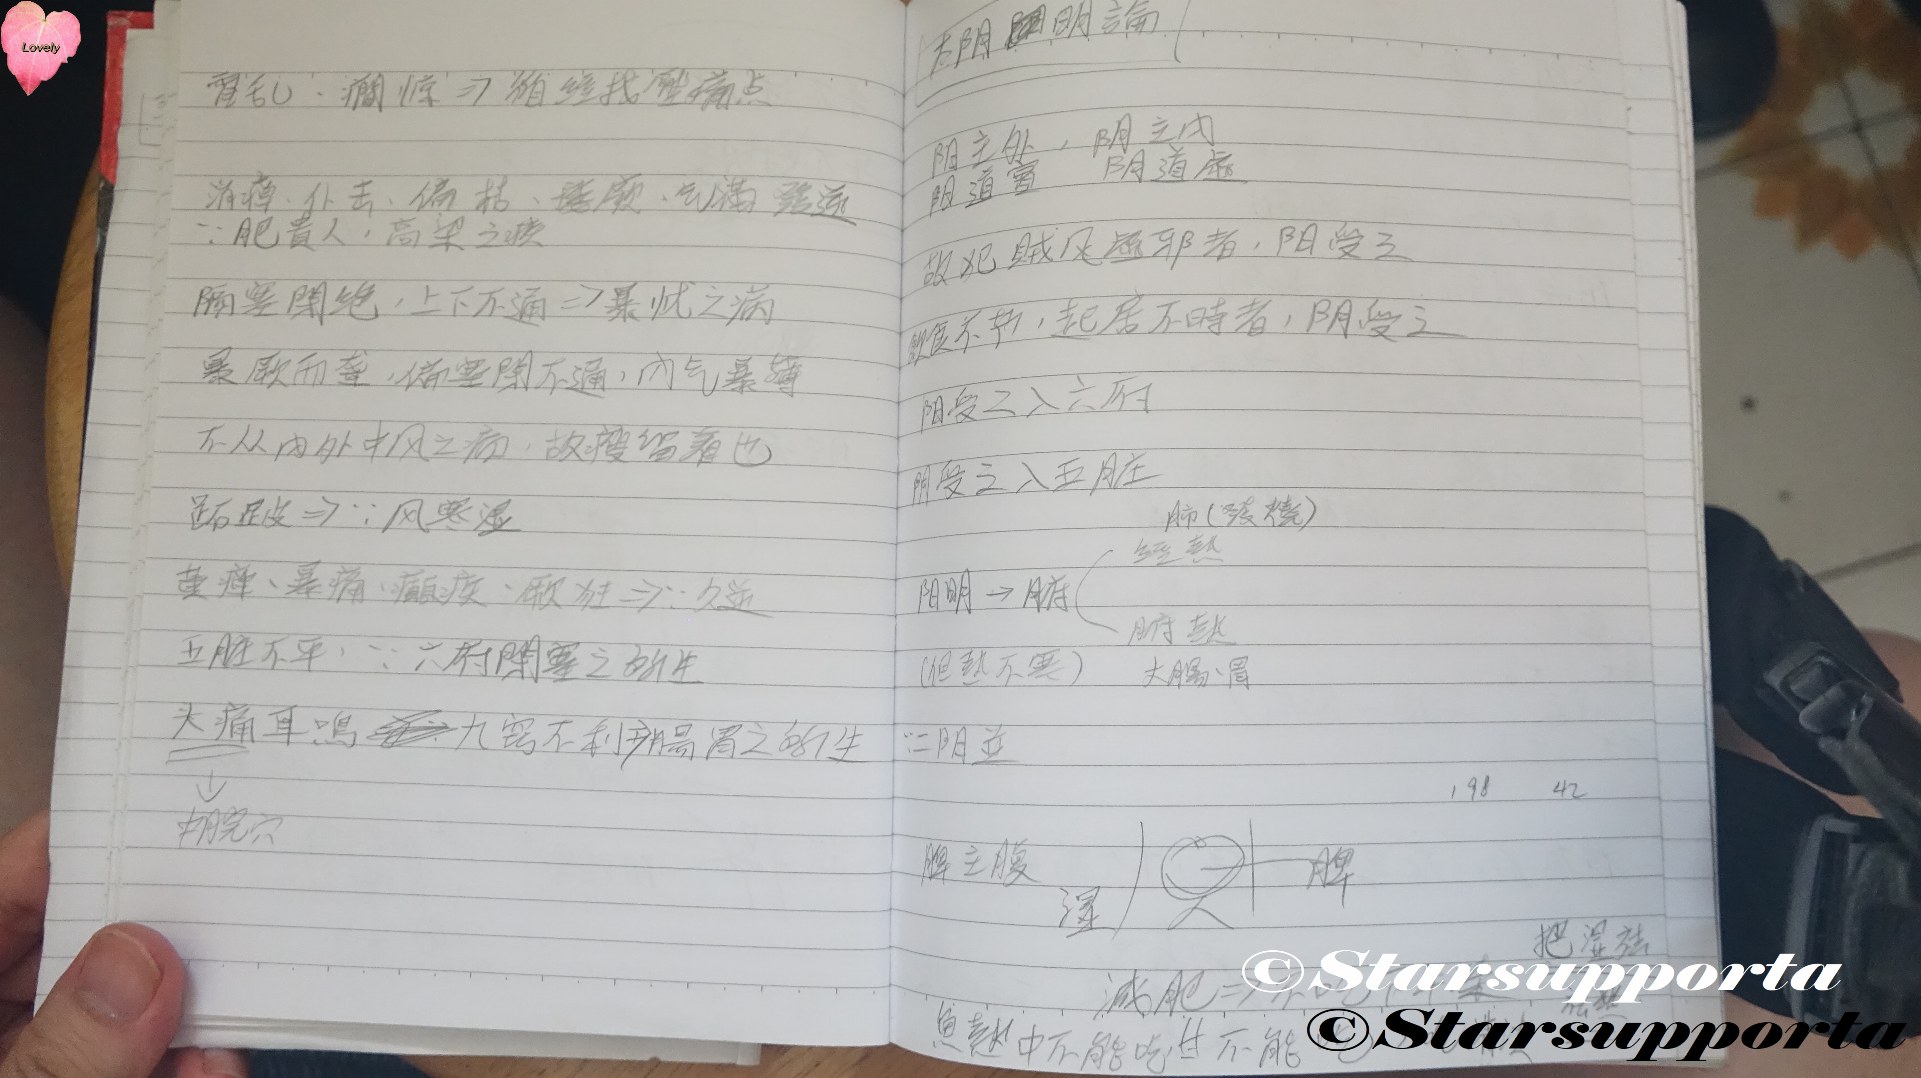 Lovely
霍乱、癇惊⇒循经找壓痛点
消瘅、仆击、偏枯、痿厥、气滿發逆
∵肥貴人，高梁之疾
隔塞閉絶，上下不通⇒暴忧之病
暴厥而聾，偏塞閉不通，内气暴薄
不从内外中风之病，故瘦留着也
跖跛⇒∵风寒湿
黄疸、暴痛、癲疾、厥狂⇒∵久逆
五脏不平，∵六府閉塞之所生
头痛耳鳴 九窍不利，腸胃之所生
↓
中脘穴
太阴阳明論
阳主外，阴主内
阳道實 阴道虚
故犯贼风虚邪者，阳受之
飲食不节，起居不時者，阴受之
阳受之入六府
阴受之入五脏
肺(發燒)
经熱
阳明→腑
腑熱
(但熱不寒) 大腸、胃
∵二阴並
198 42
脾主腹
湿 脾
把湿
減肥⇒
中不能吃 不能
©Starsupporta
©Starsupporta